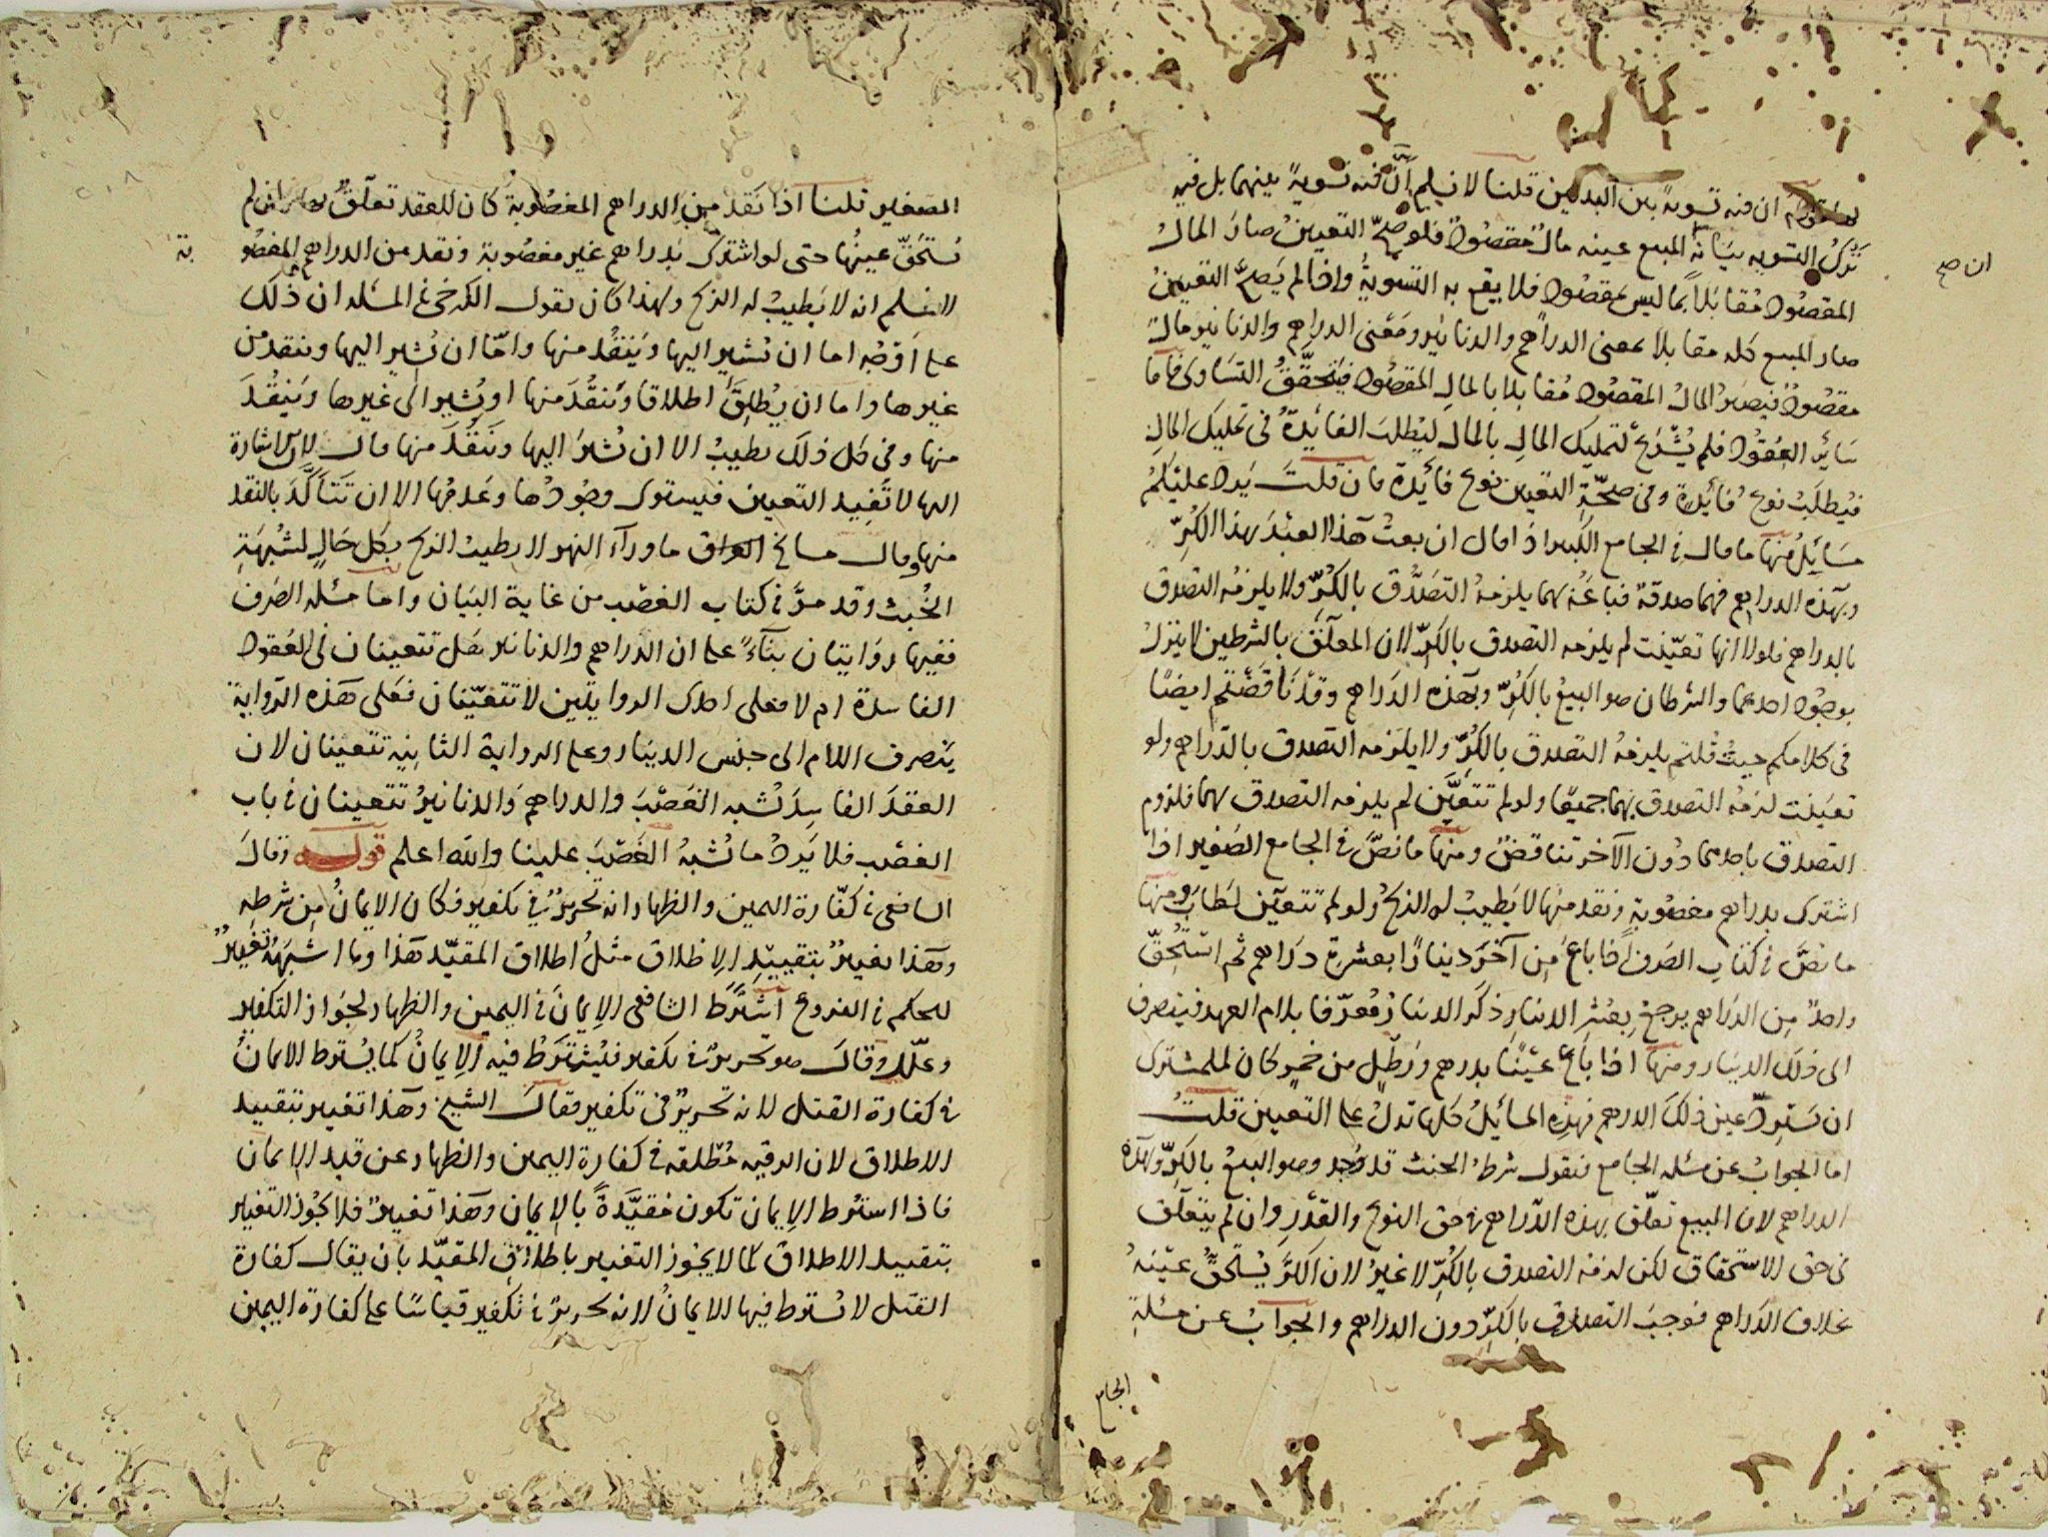 ان فيه تسوية بين البدلين قلنا لا نسلم ان فيه تسوية بينهما بل فيه
ترك التسوية بيانه ان المبيع عينه مال مقصود فلو صح التعيين صار المال
المقصود مقابلا بما ليس بمقصود فلا يقع به التسوية واذا لم يصح التعيين
صار المبيع كله مقابلا بمعنى الدراهم والدنانير ومعنى الدراهم والدنانير مال
مقصود فيصير المال المقصود مقابلا بالمال المقصود فيتحقق التساوي فاما
سائر العقود فلم يشرع لتمليك المال بالمال ليطلب الفائدة في تمليك المال
فيطلب نوع فائدة وفي صحة التعيين نوع فائدة فان قلت يرد عليكم
مسائل منها ما قال في الجامع الكبير اذا قال ان بعت هذا العبد بهذا الكر
وبهذه الدراهم فهما صدقة فباعه بهما يلزمه التصدق بالكر ولا يلزمه التصدق
بالدراهم فلولا انها تعينت لم يلزمه التصدق بالكر لان المعلق بالشرطين لا ينزل
بوجود احدهما والشرطان هو البيع بالكر وبهذه الدراهم وقد ناقضتم ايضا
في كلامكم حيث قلتم يلزمه التصدق بالكر ولا يلزمه التصدق بالدراهم ولو
تعينت لزمه التصدق بهما جميعا ولو لم تتعين لم يلزمه التصدق بهما فلزوم
التصدق باحدهما دون الآخر تناقض ومنها ما نص في الجامع الصغير اذا
اشترى بدراهم مغصوبة ونقد منها لا يطيب له الربح ولو لم تتعين لطاب ومنها
ما نص في كتاب الصرف اذا باع من آخر دينارا بعشرة دراهم ثم استحق
واحد من الدراهم يرجع بعشر الدينار ذكر الدينار معرفا بلام العهد فينصرف
الى ذلك الدينار ومنها اذا باع عينا بدرهم ورطل من خمر كان للمشترى
ان يسترد عين ذلك الدرهم فهذه المسائل كلها تدل على التعيين قلت
اما الجواب عن مسئلة الجامع فنقول شرط الحنث قد وجد وهو البيع بالكر وبهذه
الدراهم لان المبيع تعلق بهذه الدراهم في حق النوع والقدر وان لم يتعلق
في حق الاستحقاق لكن لزمه التصدق بالكر لا غير لان الكر يستحق عينه
بخلاف الدراهم فوجب التصدق بالكر دون الدراهم والجواب عن مسئلة
الجامع
ان صح
الصغير قلنا اذا نقد من الدراهم المغصوبة كان للعقد تعلق بها وان لم
يستحق عينها حتى لو اشترى بدراهم غير مغصوبة ونقد من الدراهم المغصو
بة
لا نسلم انه لا يطيب له الربح ولهذا كان يقول الكرخي في المسئلة ان ذلك
على اوجه اما ان يشير اليها وينقد منها واما ان يشير اليها وينقد من
غيرها واما ان يطلق اطلاقا وينقد منها او يشير الى غيرها وينقد
منها وفي كل ذلك يطيب الا ان يشير اليها وينقد منها قال لان الاشارة
اليها لا تفيد التعيين فيستوى وجودها وعدمها الا ان تتأكد بالنقد
منها وقال مشايخ العراق ما وراء النهر لا يطيب الربح بكل حال لشبهة
الخبث وقد مر في كتاب الغصب من غاية البيان واما مسئلة الصرف
ففيها روايتان بناء على ان الدراهم والدنانير هل تتعينان في العقود
الفاسدة ام لا فعلى احدى الروايتين لا تتعينان فعلى هذه الرواية
ينصرف اللام الى جنس الدينار وعلى الرواية الثانية تتعينان لان
العقد الفاسد يشبه الغصب والدراهم والدنانير تتعينان في باب
الغصب فلا يرد ما يشبه الغصب علينا والله اعلم قوله وقال
الشافعي في كفارة اليمين والظهار انه تحرير في تكفير فكان الايمان من شرطه
وهذا تغيير بتقييد الاطلاق مثل اطلاق المقيد هذا وما اشبهه تغيير
للحكم في الفروع اشترط الشافعي الايمان في اليمين والظهار لجواز التكفير
وعلل وقال هو تحرير في تكفير فيشترط فيه الايمان كما يشترط الايمان
في كفارة القتل لانه تحرير في تكفير فقال الشيخ وهذا تغيير بتقييد
الاطلاق لان الرقبة مطلقة في كفارة اليمين والظهار عن قيد الايمان
فاذا اشترط الايمان تكون مقيدة بالايمان وهذا تغيير فلا يجوز التغيير
بتقييد الاطلاق كما لا يجوز التغيير باطلاق المقيد بان يقال كفارة
القتل لا يشترط فيها الايمان لانه تحرير في تكفير قياسا على كفارة اليمين